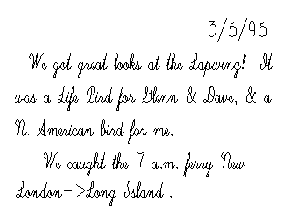 3/5/95
We got great looks at the Lapwing! It
was a Life Bird for Glenn & Dave, & a
N. American bird for me.
We caught the 7 a.m. ferry New
London->Long Island.